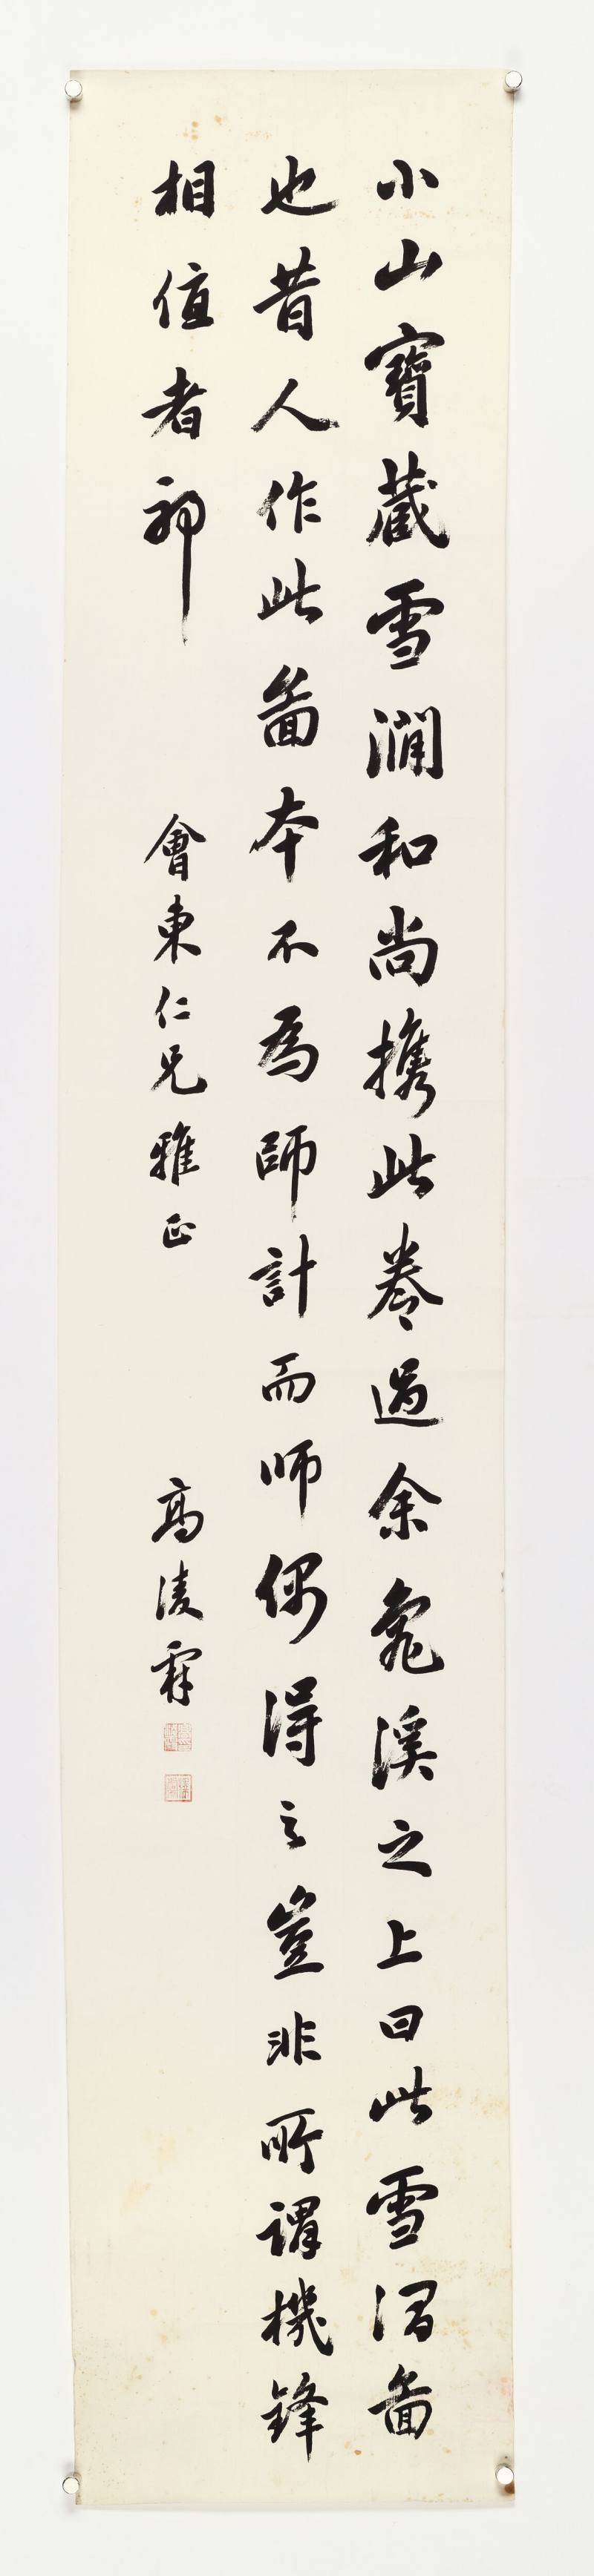 小山寶藏雪澗和尚携此卷過余龜溪之上曰此雪澗啚
也昔人作此啚本不為師計而师偶得之豈非所謂機鋒
相值者耶
會東仁兄雅正
高淩霨